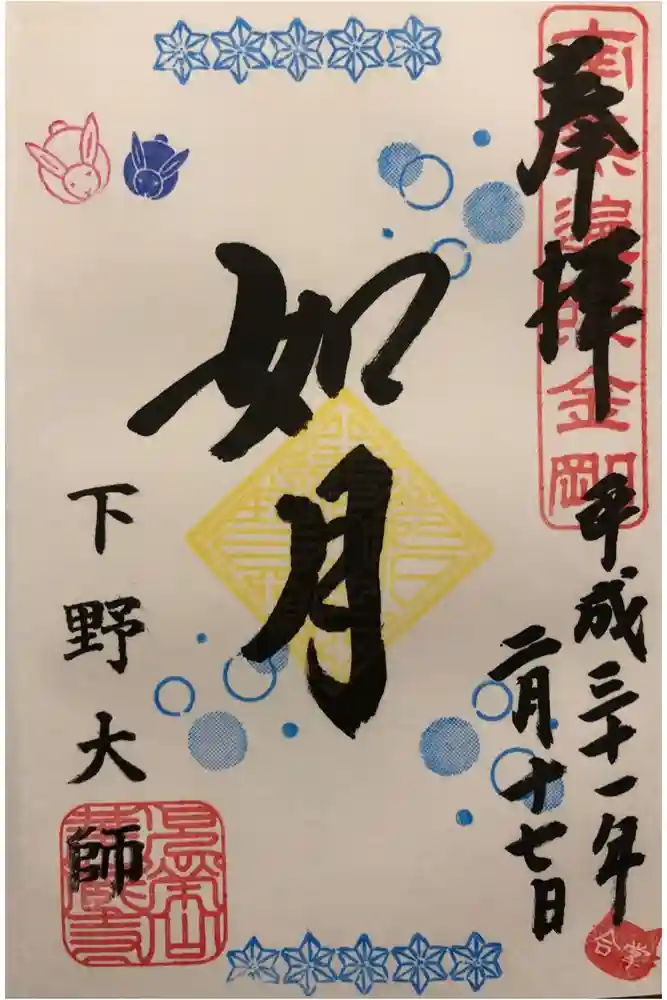 奉拝
南無遍照金剛
平成三十一年
二月十七日
合掌
如月
下野大師